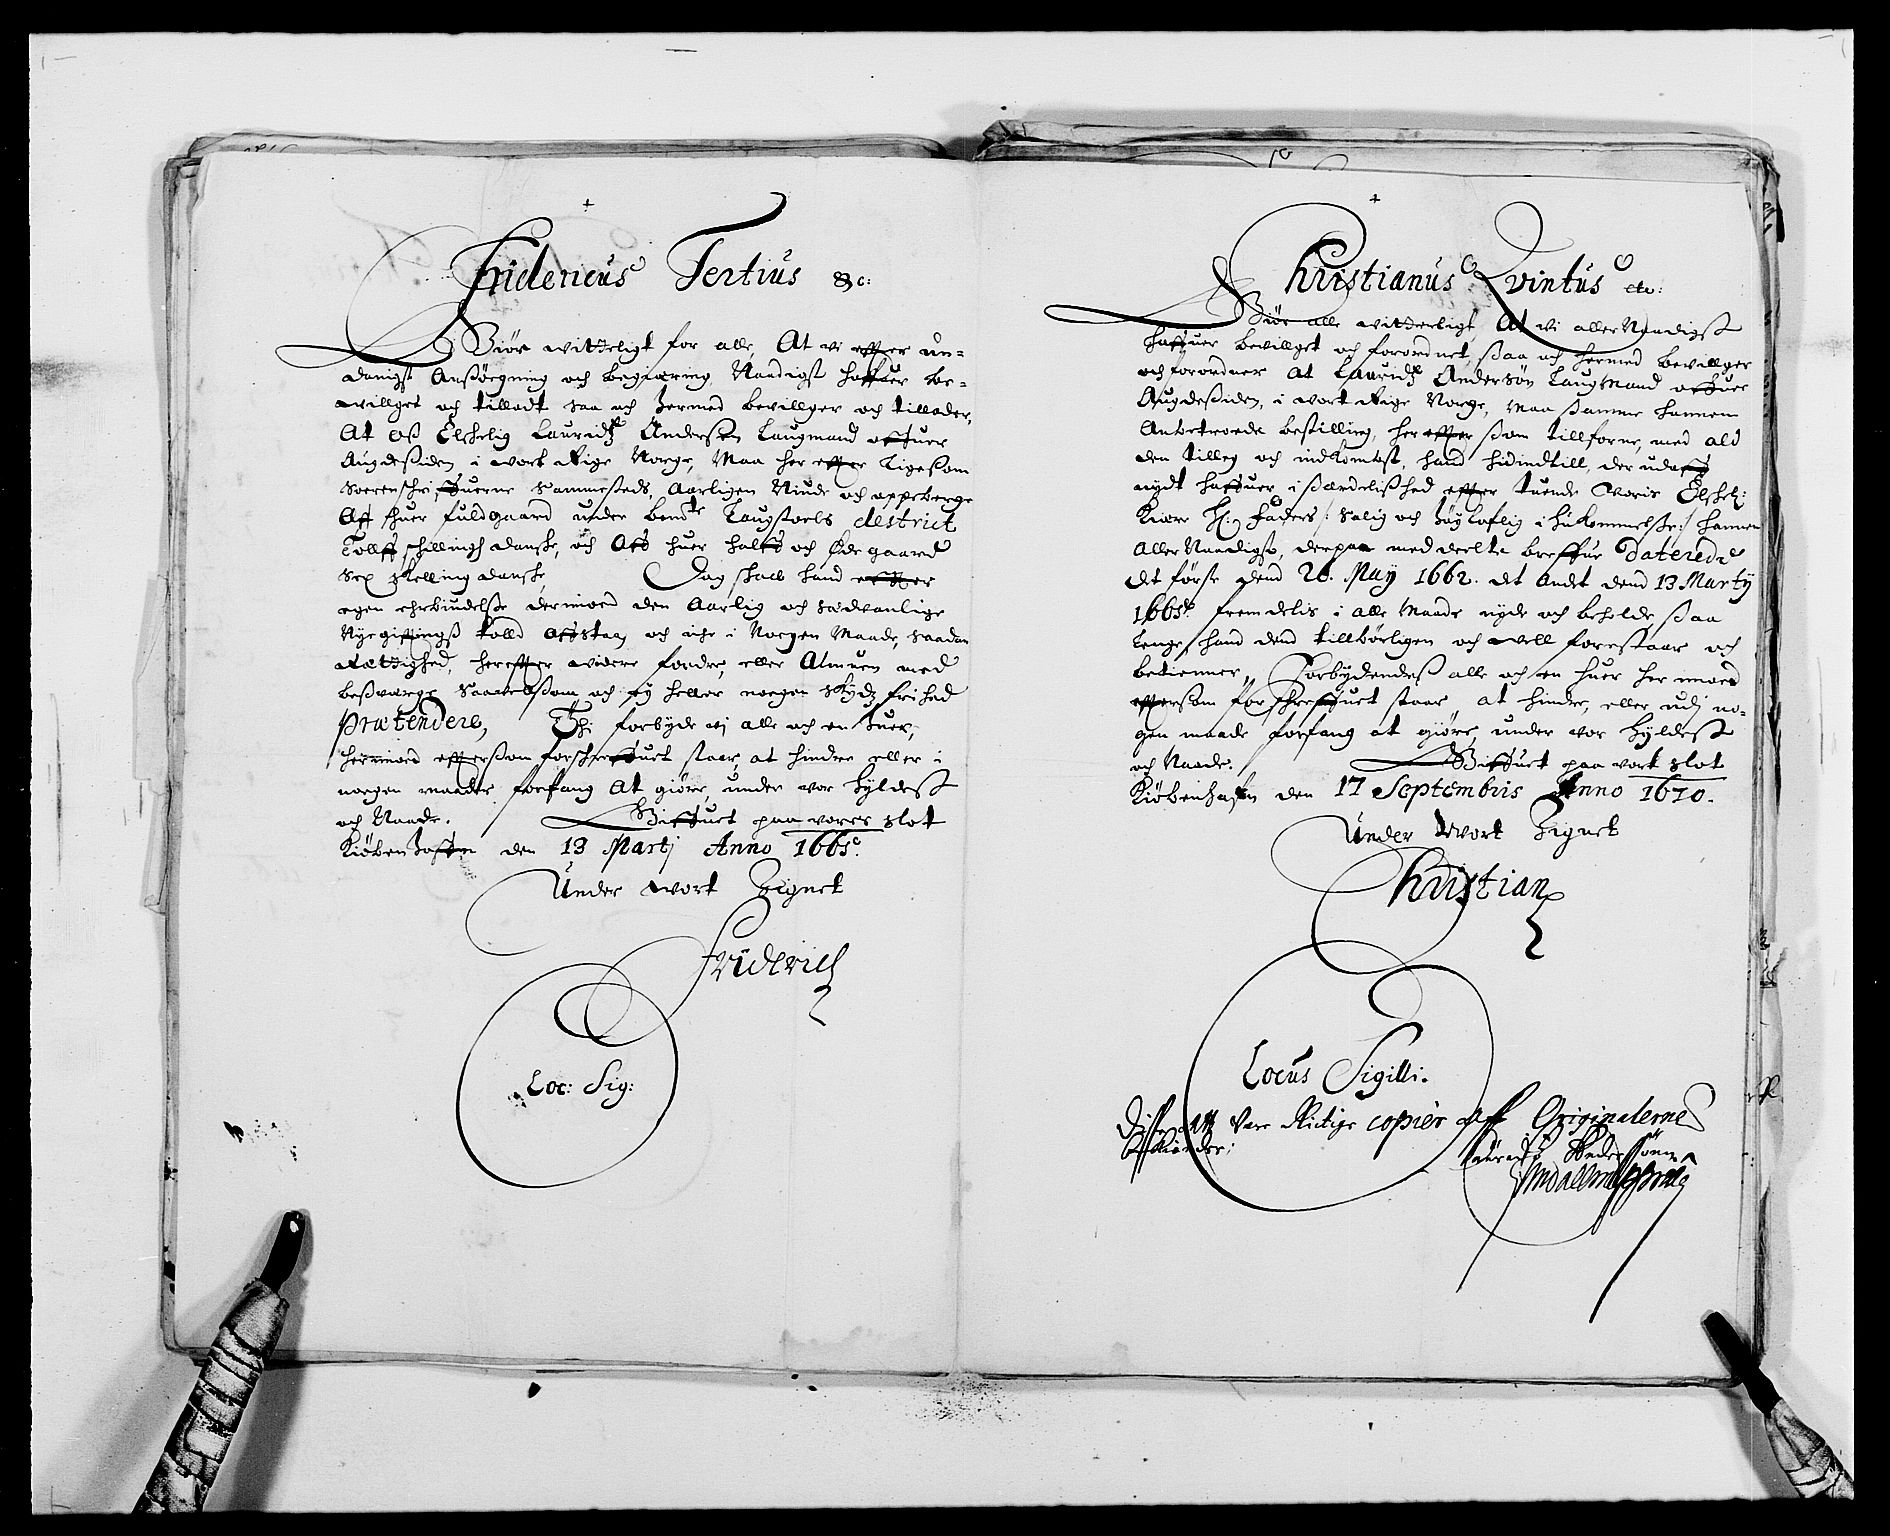 Fridericus Tertius &c:
Giør witterligt for alle, At vi effter un-
danigst Ansøgning och begiæring, Naadigst haffuer be-
williget och tilladt saa och hermed bevillger och tillader,
At oß Elskelig Lauridtz Andersen Laugmand offuer
Augdesiden i wort Rige Norge, Maa her effter ligesom
Sorenschriffuerne sammesteds, Aarligen Niude och oppeberge
Aff huer fuldgaard under bemte Laugstoels district
Tollff schilling danske, och Aff huer halff och Øde gaard
Sex skelling danske, Dog skall hand effter
egen erbiudelse derimod den Aarlig och sædvanlige
Nye giftings told affstaa, och iche i Nogen Maade, saadan
Rættighed, hereffter videre fordre, eller Almuen med
besværge saavelsom och ey heller nogen skydtz frihed
Prætendere, Thi forbyde vi alle och en huer,
herimod effterßom forschreffuet staar, at hindre eller i
nogen maade forfang At giøre, under vor hyldest
och Naade. Giffuet paa vores slot
Kiøbenhaffn den 13 Martj Anno 1665.
Under wort Zignet
Friderich
Loc: Sig:
Christianus Qvintus etc:
Giør alle witterligt, At vi aller Naadigst
haffuer bevillget och forordnet, ßaa och hermed bevillger
och forordner at Lauridtz Andersøn Laugmand offuer
Augdesiden, i wort Rige Norge, Maa ßamme hannem
Anbetroede bestilling, her effter ßom tillforne, med ald
den tilleg och indkombst, hand hidindtill, der udaff
nydt haffuer, i særdelished effter tuende Voris Elskel:
Kiære H: Faders /: Salig och høylofflig i hukommelse :/ hannem
Aller Naadigst, derpaa meddeelte breffue Daterede
det første dend 26. May 1662. det Andt dend 13 Martij
1665. fremdelis i alle Maade nyde och beholde ßaa
lenge hand dend tillbørligen och well forestaar och
betienner, Forbydendeß alle och en huer her imod
effterßom forschreffuet staar, at hindre, eller udj no-
gen maade forfang at giøre, under vor hyldest
och Naade. Giffuet paa vort slot
Kiøbenhaffn den 17 Septembris Anno 1670.
Under Wort Zignet
Christian
Locus Sigilli.
Disse att Vare Rictige copier aff Originalerne
Bekiender: